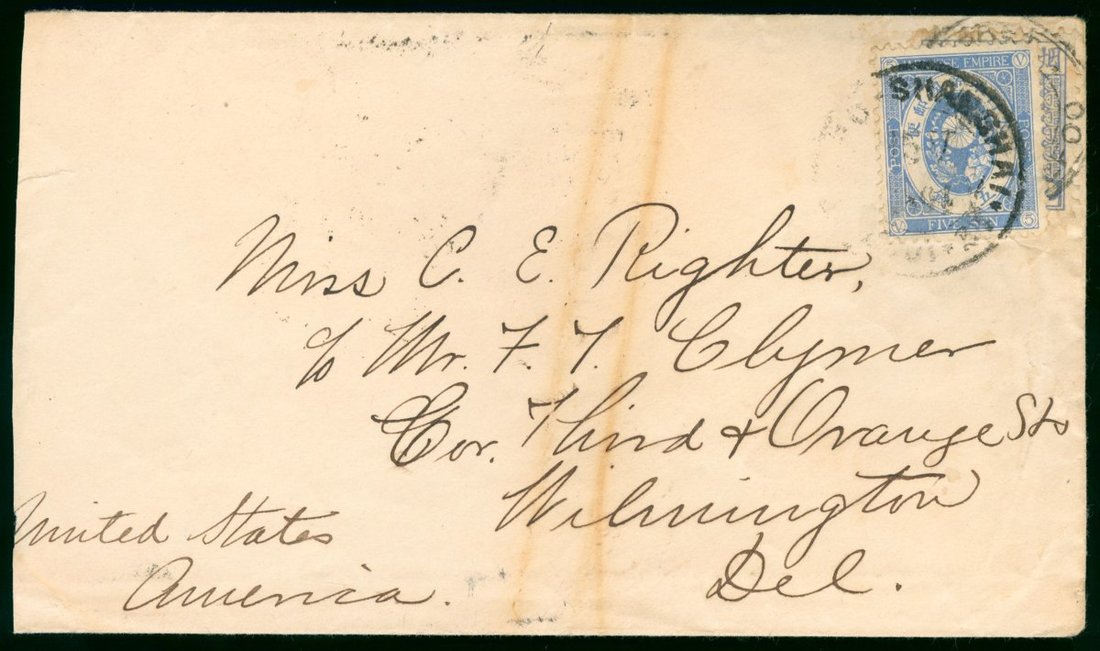 SHANGHAI
Miss C. E. Righter,
c/o Mr. F. T. Clymer
Cor. Third & Orange Sts
Wilmington
Del.
United States
America.
EMPIRE
POST
FIVE SEN
5